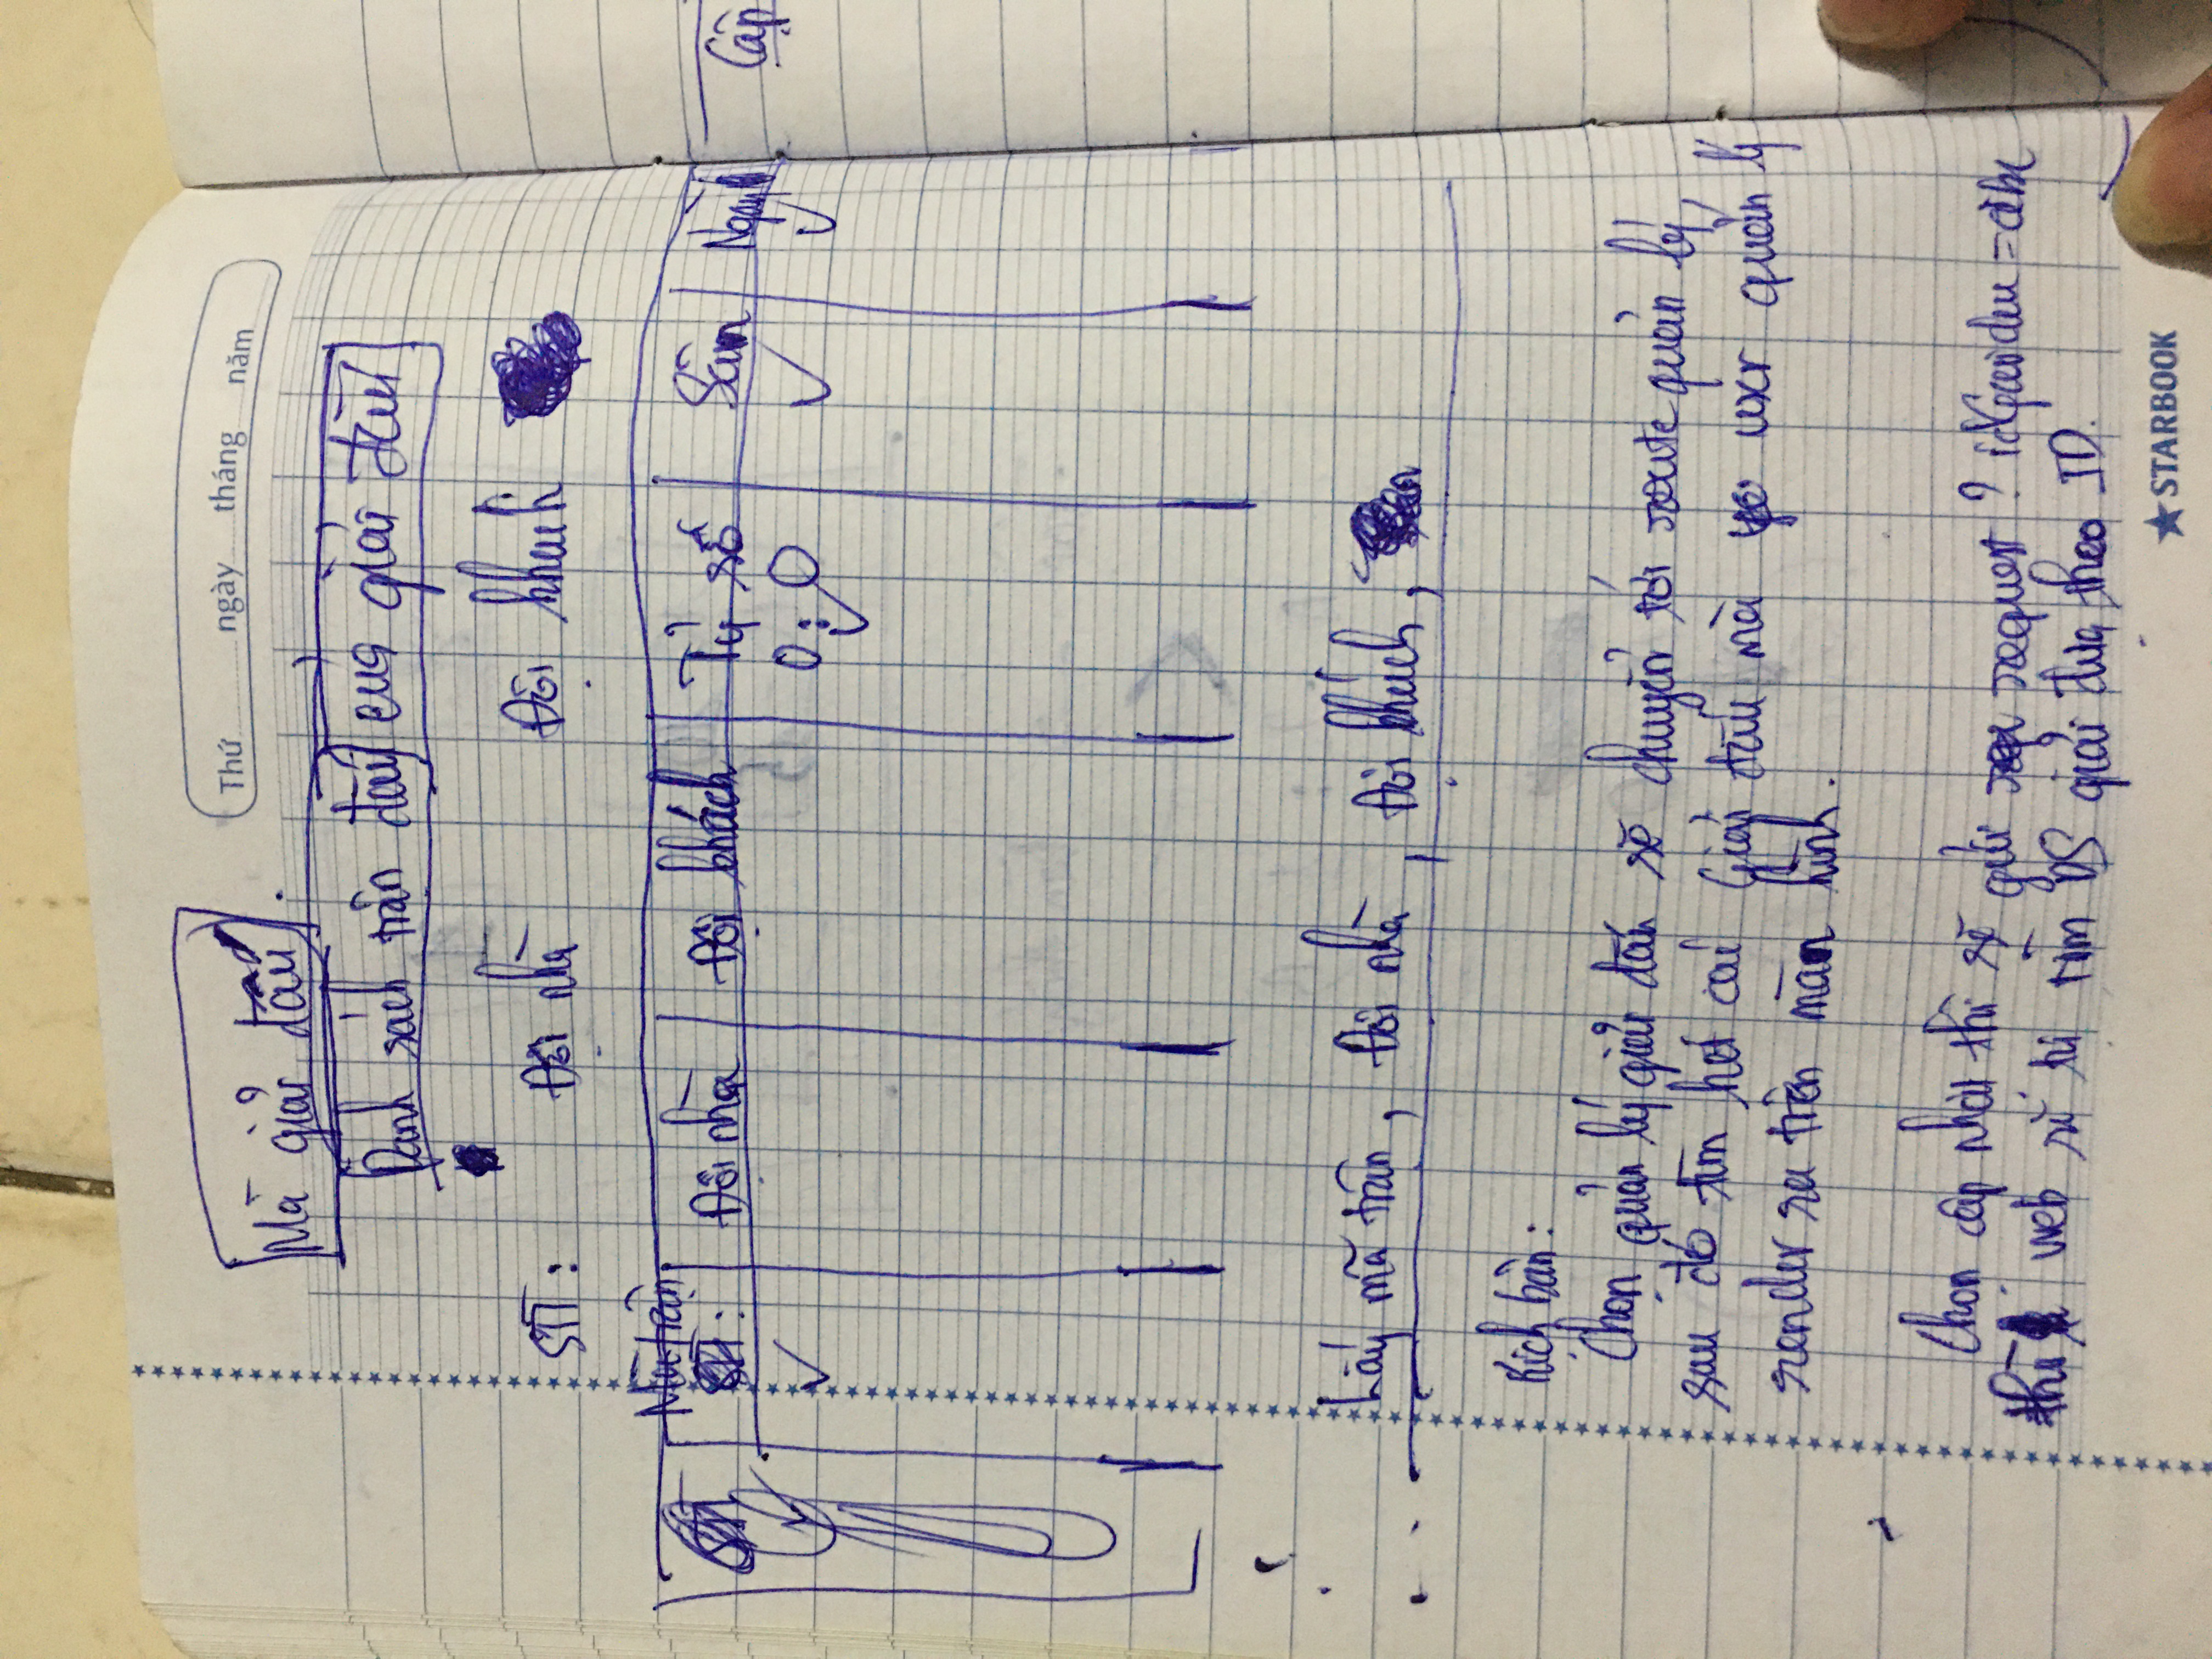 Thứ ngày tháng năm
Mã giải đấu.
Danh sách trận đấu của giải đấu
STT: Đội nhà Đội khách
Mã trận
Đội nhà Đội khách Tỷ số Sân Ngày
Cập
0 : 0
Lấy mã trận, Đội nhà, Đội khách,
Kịch bản:
Chọn quản lý giải đấu sẽ chuyển tới route quản lý,
sau đó tìm hết các Giải đấu mà user quản lý
render ra trên màn hình.
Chọn cập nhật thì sẽ gửi request ?idGiaidau=abc
thì web sẽ tìm DS giải đưa theo ID.
STARBOOK